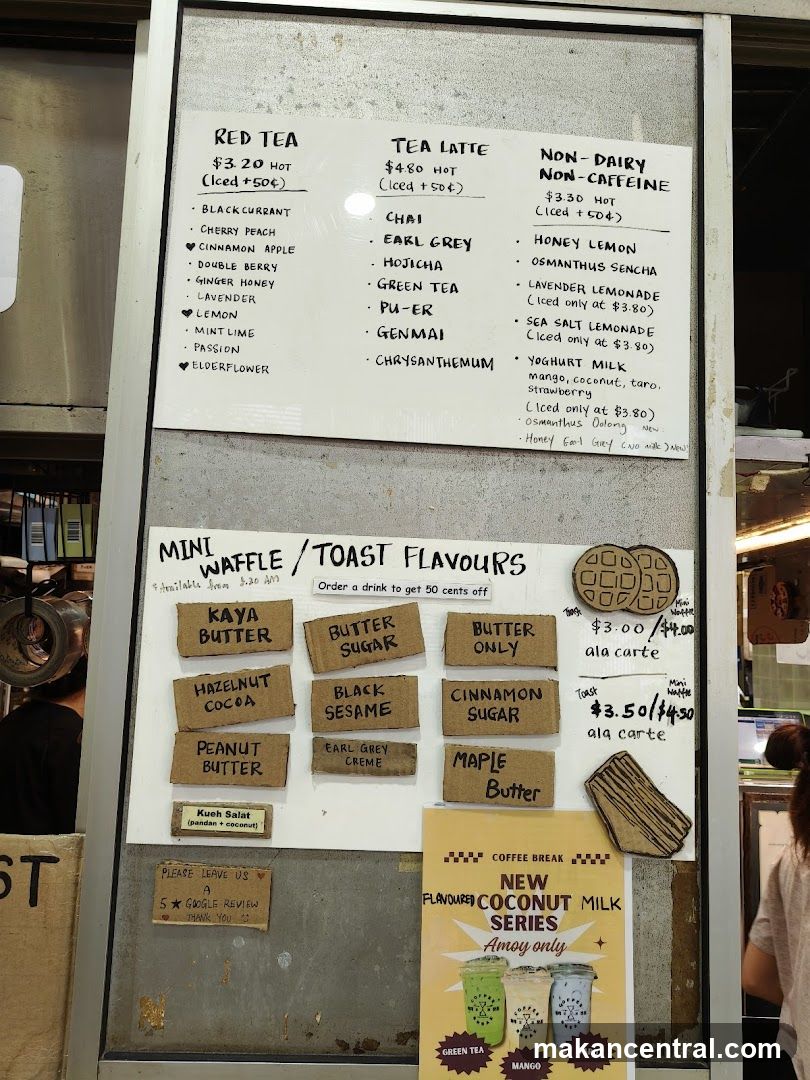 RED TEA
$3.20 HOT
(Iced +50¢)
· BLACKCURRANT
· CHERRY PEACH
♥ CINNAMON APPLE
· DOUBLE BERRY
· GINGER HONEY
· LAVENDER
♥ LEMON
· MINT LIME
· PASSION
♥ ELDERFLOWER
TEA LATTE
$4.80 HOT
(Iced +50¢)
· CHAI
· EARL GREY
· HOJICHA
· GREEN TEA
· PU-ER
· GENMAI
· CHRYSANTHEMUM
NON-DAIRY
NON-CAFFEINE
$3.30 HOT
(Iced +50¢)
· HONEY LEMON
· OSMANTHUS SENCHA
· LAVENDER LEMONADE
(Iced only at $3.80)
· SEA SALT LEMONADE
(Iced only at $3.80)
· YOGHURT MILK
mango, coconut, taro,
strawberry
(Iced only at $3.80)
· Osmanthus Oolong NEW
· Honey Earl Grey (No milk) NEW!
MINI
WAFFLE / TOAST FLAVOURS
*Available from 8.30 AM
Order a drink to get 50 cents off
KAYA
BUTTER
BUTTER
SUGAR
BUTTER
ONLY
Toast Mini Waffle
$3.00/$4.00
ala carte
HAZELNUT
COCOA
BLACK
SESAME
CINNAMON
SUGAR
Toast Mini Waffle
$3.50/$4.50
ala carte
PEANUT
BUTTER
EARL GREY
CREME
MAPLE
Butter
Kueh Salat
(pandan + coconut)
PLEASE LEAVE US ♥
A
5 ★ GOOGLE REVIEW
♥ THANK YOU
ST
COFFEE BREAK
NEW
FLAVOURED COCONUT MILK
SERIES
Amoy only
COFFEE
BREAK
COFFEE
BREAK
COFFEE
BREAK
GREEN TEA
MANGO
makancentral.com